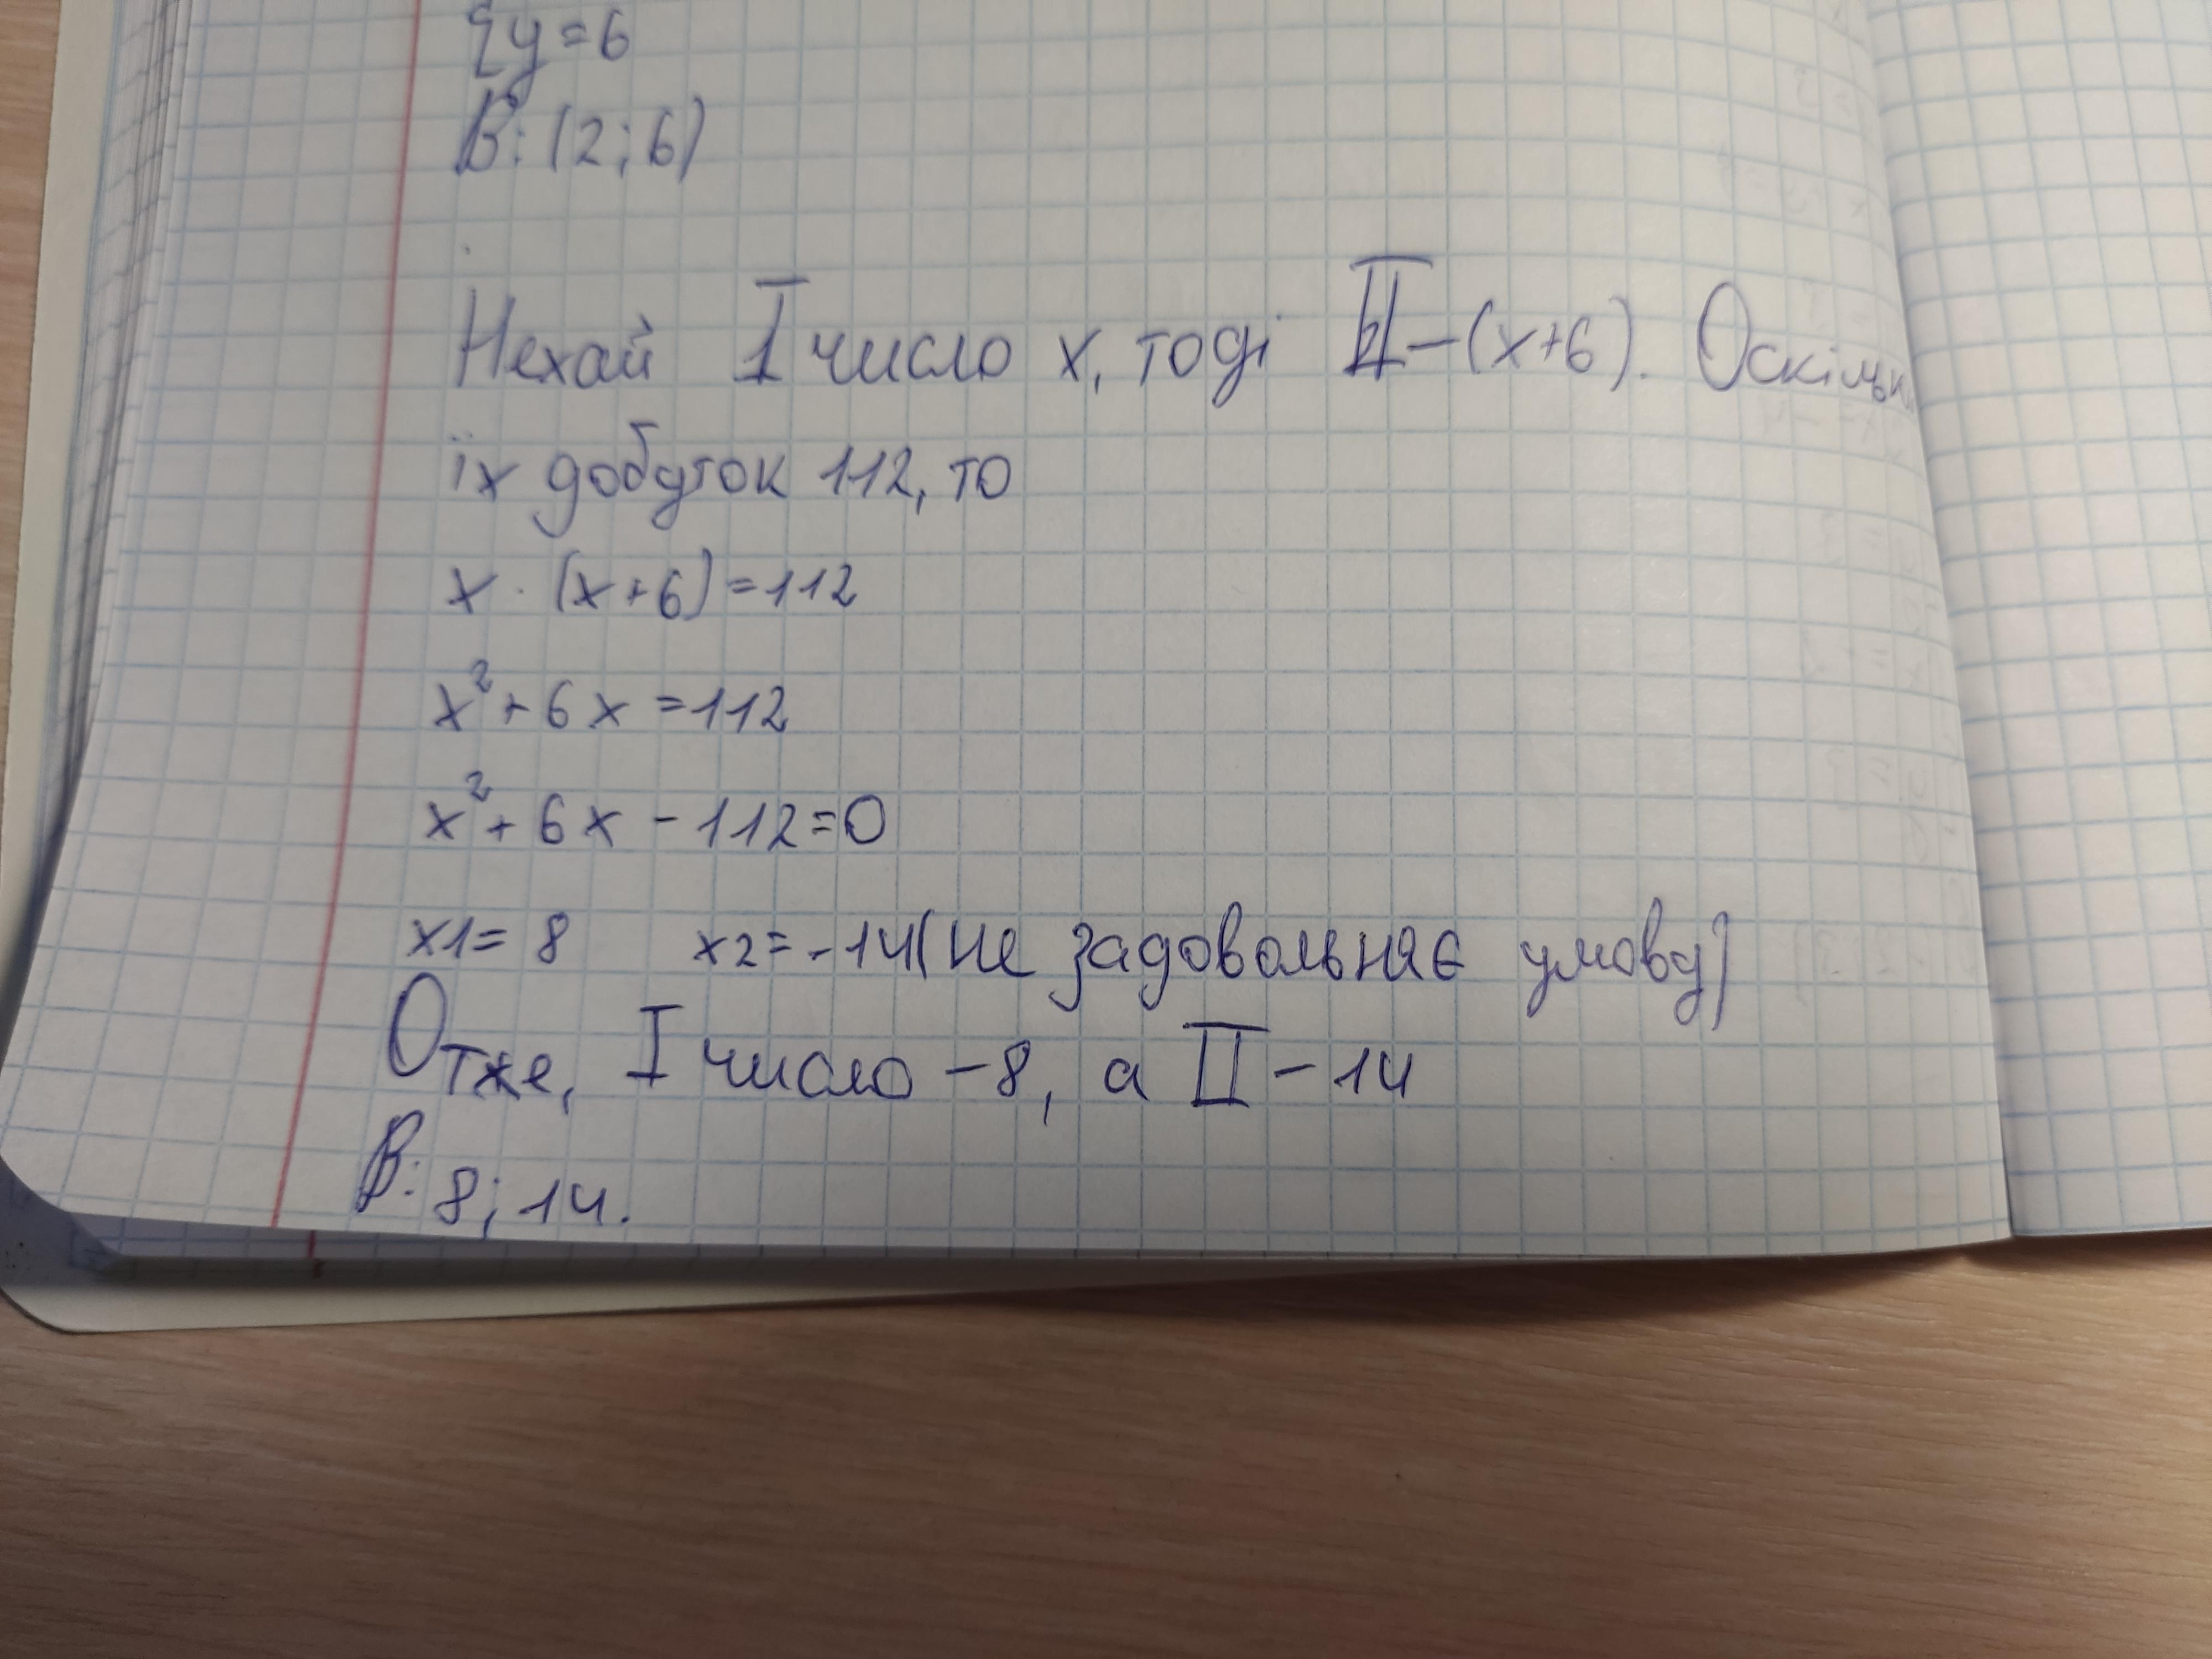 {y=6
В: (2; 6)
Нехай I число х, тоді II – (х+6). Оскільки
їх добуток 112, то
х · (х+6) = 112
х² + 6х = 112
х² + 6х - 112 = 0
х1 = 8 х2 = -14 (не задовольняє умову)
Отже, I число – 8, а II – 14
В: 8; 14.